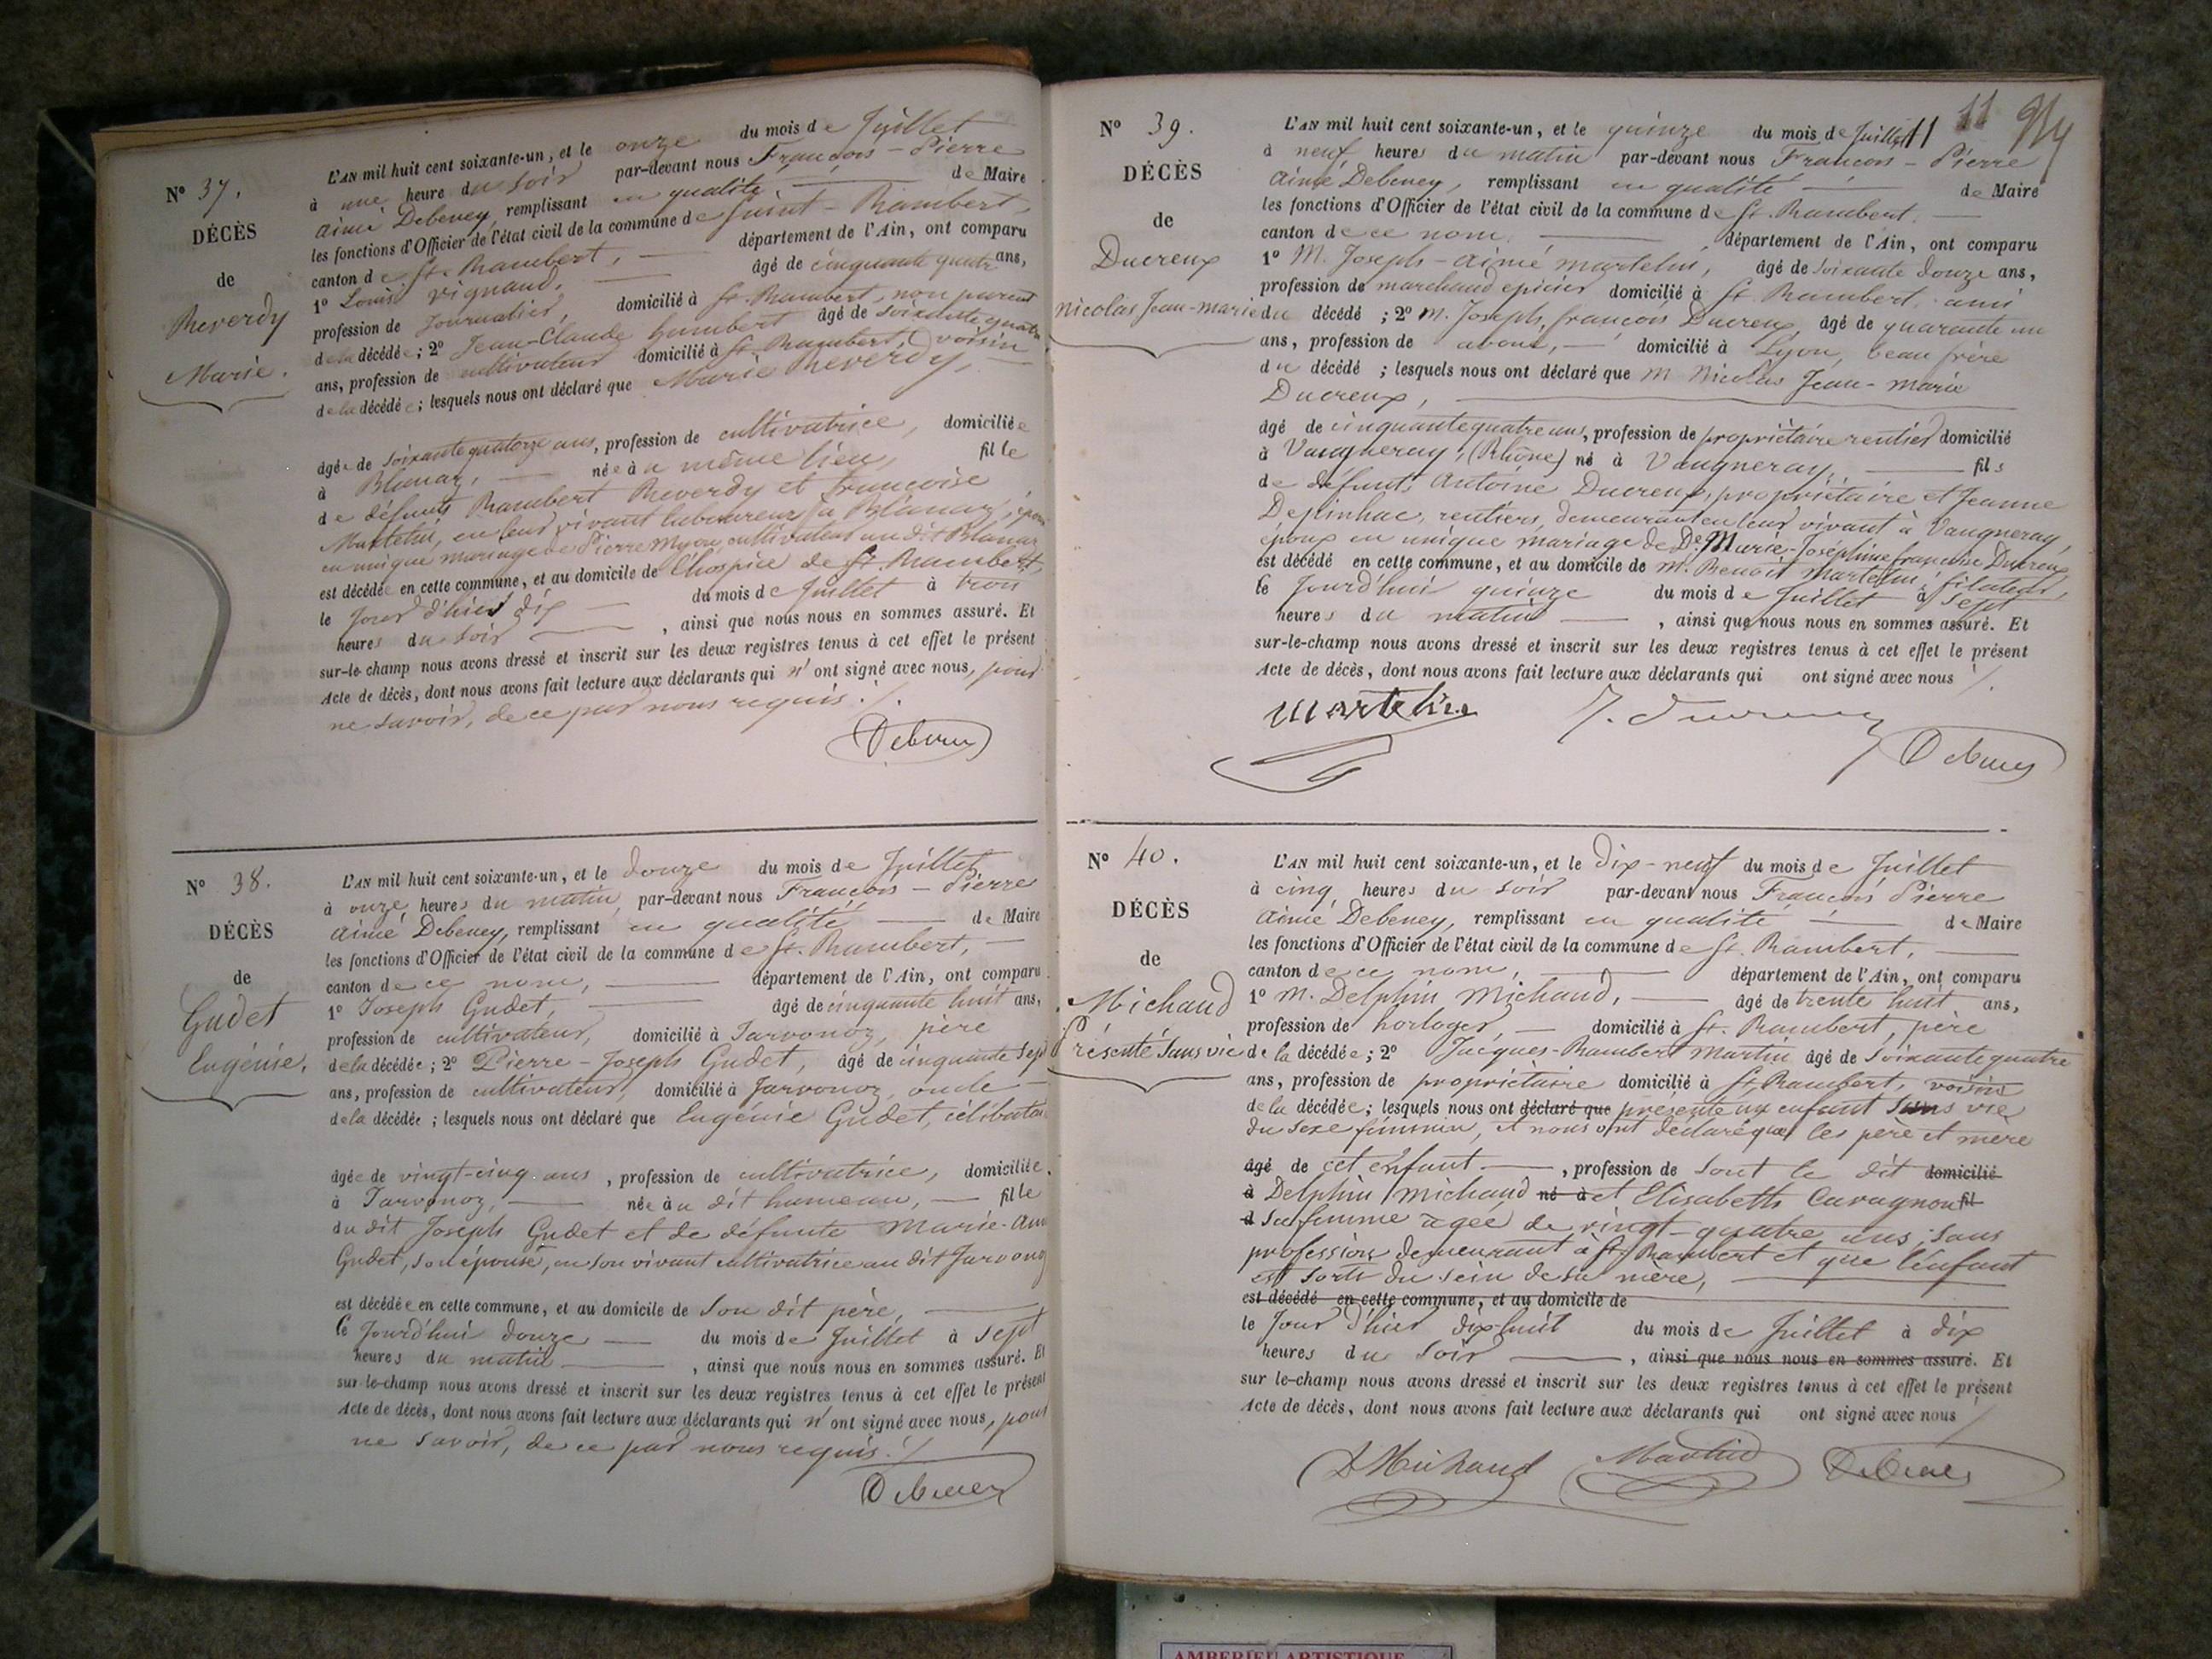 Nº 37.
DÉCÈS
de
Reverdy
Marie.
L'AN mil huit cent soixante-un, et le onze du mois de Juillet
à une heure du soir par-devant nous François-Pierre
aimé Debeney, remplissant en qualité de Maire
les fonctions d'Officier de l'état civil de la commune de Saint-Rambert,
canton de St. Rambert, département de l'Ain, ont comparu
1º Louis vignaud, âgé de cinquante quatre ans,
profession de Journalier, domicilié à St. Rambert, non parent
de la décédée; 2º Jean-Claude humbert âgé de soixante quatre
ans, profession de cultivateur domicilié à St. Rambert, voisin
de la décédée; lesquels nous ont déclaré que Marie Reverdy,
âgée de soixante quatorze ans, profession de cultivatrice, domiciliée
à Blanaz, née au même lieu, fille
de défunts Rambert Reverdy et françoise
Martelin, en leur vivant laboureurs à Blanaz, épouse
en unique mariage de Pierre Myon, cultivateur au dit Blanaz
est décédée en cette commune, et au domicile de l'hospice de St. Rambert,
le jour d'hier dix du mois de Juillet à trois
heures du soir, ainsi que nous nous en sommes assuré. Et
sur-le-champ nous avons dressé et inscrit sur les deux registres tenus à cet effet le présent
Acte de décès, dont nous avons fait lecture aux déclarants qui n'ont signé avec nous, pour
ne savoir, de ce par nous requis ./.
Debeney
Nº 38.
DÉCÈS
de
Gudet
Eugénie.
L'AN mil huit cent soixante-un, et le douze du mois de Juillet
à onze heures du matin par-devant nous François-Pierre
aimé Debeney, remplissant en qualité de Maire
les fonctions d'Officier de l'état civil de la commune de St. Rambert,
canton de ce nom, département de l'Ain, ont comparu
1º Joseph Gudet, âgé de cinquante huit ans,
profession de cultivateur, domicilié à Jarvonoz, père
de la décédée; 2º Pierre-Joseph Gudet, âgé de cinquante sept
ans, profession de cultivateur, domicilié à Jarvonoz, oncle
de la décédée; lesquels nous ont déclaré que Eugénie Gudet, célibataire
âgée de vingt-cinq ans, profession de cultivatrice, domiciliée
à Jarvonoz, née au dit hameau, fille
du dit Joseph Gudet et de défunte Marie-Anne
Gudet, son épouse, en son vivant cultivatrice au dit Jarvonoz
est décédée en cette commune, et au domicile de son dit père,
le Jourd'hui douze du mois de Juillet à sept
heures du matin, ainsi que nous nous en sommes assuré. Et
sur-le-champ nous avons dressé et inscrit sur les deux registres tenus à cet effet le présent
Acte de décès, dont nous avons fait lecture aux déclarants qui n'ont signé avec nous, pour
ne savoir, de ce par nous requis ./
Debeney
11 11
Nº 39.
DÉCÈS
de
Ducreux
Nicolas Jean-marie
L'AN mil huit cent soixante-un, et le quinze du mois de Juillet
à neuf heures du matin par-devant nous François-Pierre
Aimé Debeney, remplissant en qualité de Maire
les fonctions d'Officier de l'état civil de la commune de St. Rambert,
canton de ce nom, département de l'Ain, ont comparu
1º M. Joseph-aimé martelin, âgé de soixante douze ans,
profession de marchand epicier domicilié à St Rambert, ami
du décédé; 2º M. Joseph, françois Ducreux, âgé de quarante un
ans, profession de avoué, domicilié à Lyon, beau frère
du décédé; lesquels nous ont déclaré que M Nicolas Jean-marie
Ducreux,
âgé de cinquante quatre ans, profession de propriétaire rentier domicilié
à Vaugneray, (Rhône) né à Vaugneray, fils
de défunts Antoine Ducreux, propriétaire et Jeanne
Depinhac, rentiers, demeurant en leur vivant à Vaugneray,
époux en unique mariage de De. Marie-Joséphine françoise Ducreux
est décédé en cette commune, et au domicile de M. Benoit Martelin, filateur,
le Jourd'hui quinze du mois de Juillet à sept
heures du matin, ainsi que nous nous en sommes assuré. Et
sur-le-champ nous avons dressé et inscrit sur les deux registres tenus à cet effet le présent
Acte de décès, dont nous avons fait lecture aux déclarants qui ont signé avec nous ./.
Martelin J. Ducreux Debeney
Nº 40.
DÉCÈS
de
Michaud
Présenté sans vie
L'AN mil huit cent soixante-un, et le dix-neuf du mois de Juillet
à cinq heures du soir par-devant nous François Pierre
Aimé Debeney, remplissant en qualité de Maire
les fonctions d'Officier de l'état civil de la commune de St. Rambert,
canton de ce nom, département de l'Ain, ont comparu
1º M. Delphin Michaud, âgé de trente huit ans,
profession de horloger, domicilié à St. Rambert, père
de la décédée; 2º Jacques-Rambert Martin âgé de soixante quatre
ans, profession de propriétaire domicilié à St. Rambert, voisin
de la décédée; lesquels nous ont déclaré que présenté un enfant sans vie
du sexe féminin, et nous ont déclaré que les père et mère
âgé de cet enfant, profession de sont le dit domicilié
à Delphin Michaud né à et Elisabeth Cavagnon fil
d sa femme agée de vingt-quatre ans, sans
profession demeurant à St. Rambert et que l'enfant
est sorti du sein de sa mère,
est décédé en cette commune, et au domicile de
le Jour d'hier dix-huit du mois de Juillet à dix
heures du soir, ainsi que nous nous en sommes assuré. Et
sur le-champ nous avons dressé et inscrit sur les deux registres tenus à cet effet le présent
Acte de décès, dont nous avons fait lecture aux déclarants qui ont signé avec nous /
D Michaud Martin Debeney
AMBERIEU ARTISTIQUE